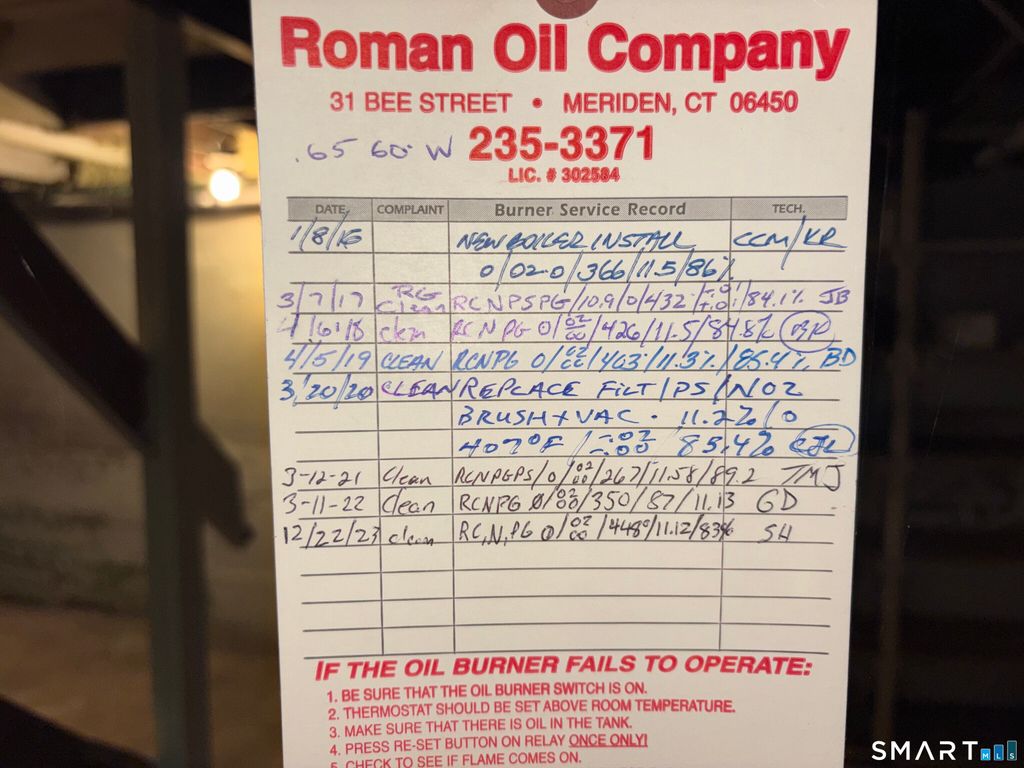 Roman Oil Company
31 BEE STREET • MERIDEN, CT 06450
.65 60° W 235-3371
LIC. # 302584
DATE COMPLAINT Burner Service Record TECH.
1/8/16 NEW BOILER INSTALL CCM/KR
0/02-0/366/11.5/86%
3/7/17 Clean RCNPSPG/10.9/0/432/ /84.1% JB
4/6/18 clean RCNPG 0/02/00/426/11.5/84.8% BR
4/5/19 CLEAN RCNPG 0/02/00/403/11.3%/85.4% BD
3/20/20 CLEAN REPLACE FILT/PS/NOZ
BRUSH + VAC. 11.2%/0
407°F/-.02/-.00 85.4%
3-12-21 Clean RCNPGPS/0/02/00/267/11.58/89.2 TMJ
3-11-22 Clean RCNPG 0/02/00/350/87/11.13 GD
12/22/23 clean RC,N,PG 0/02/00/448°/11.12/83% SH
IF THE OIL BURNER FAILS TO OPERATE:
1. BE SURE THAT THE OIL BURNER SWITCH IS ON.
2. THERMOSTAT SHOULD BE SET ABOVE ROOM TEMPERATURE.
3. MAKE SURE THAT THERE IS OIL IN THE TANK.
4. PRESS RE-SET BUTTON ON RELAY ONCE ONLY!
5. CHECK TO SEE IF FLAME COMES ON.
SMART MLS